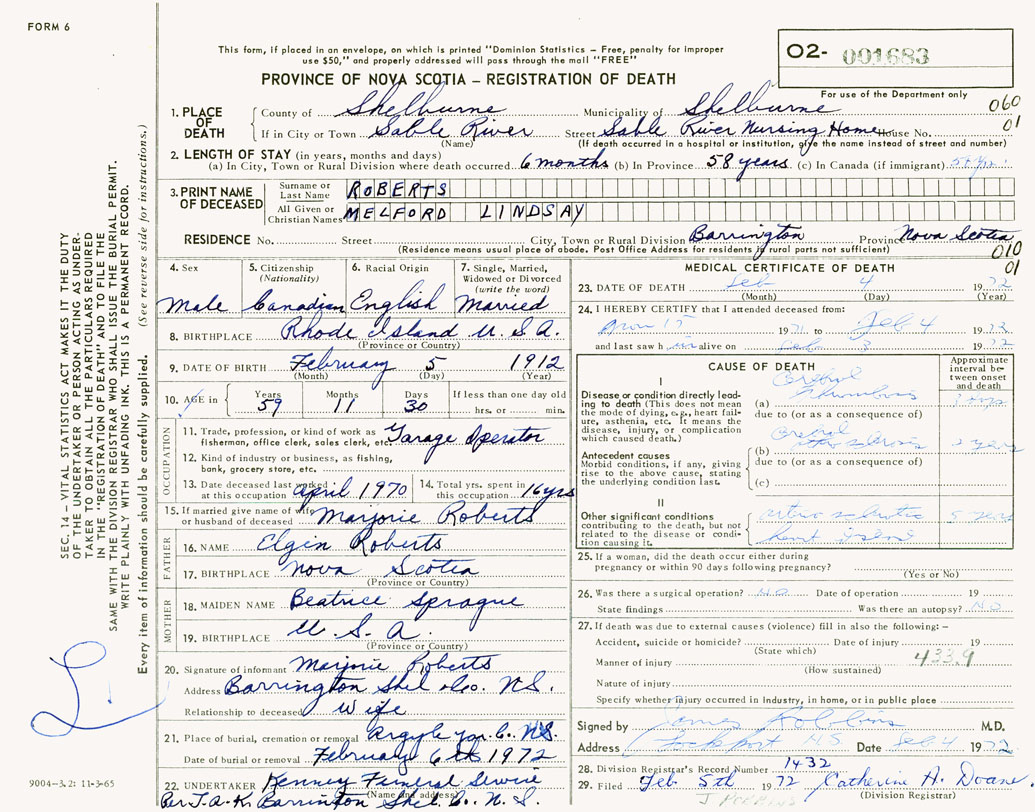 FORM 6
This form, if placed in an envelope, on which is printed "Dominion Statistics – Free, penalty for improper
use $50," and properly addressed will pass through the mail "FREE"
PROVINCE OF NOVA SCOTIA – REGISTRATION OF DEATH
02- 001683
For use of the Department only
060
01
1. PLACE OF DEATH County of Shelburne Municipality of Shelburne
If in City or Town Sable River Street Sable River Nursing Home House No.
(Name) (If death occurred in a hospital or institution, give the name instead of street and number)
2. LENGTH OF STAY (in years, months and days)
(a) In City, Town or Rural Division where death occurred 6 months (b) In Province 58 years (c) In Canada (if immigrant) 58 yrs.
3. PRINT NAME OF DECEASED Surname or Last Name ROBERTS
All Given or Christian Names MELFORD LINDSAY
RESIDENCE No. Street City, Town or Rural Division Barrington Province Nova Scotia
(Residence means usual place of abode. Post Office Address for residents in rural parts not sufficient)
010
01
4. Sex 5. Citizenship (Nationality) 6. Racial Origin 7. Single, Married, Widowed or Divorced (write the word)
Male Canadian English Married
8. BIRTHPLACE Rhode Island U.S.A.
(Province or Country)
9. DATE OF BIRTH February 5 1912
(Month) (Day) (Year)
10. AGE in Years Months Days If less than one day old
59 11 30 hrs. or min.
OCCUPATION
11. Trade, profession, or kind of work as fisherman, office clerk, sales clerk, etc. Garage Operator
12. Kind of industry or business, as fishing, bank, grocery store, etc.
13. Date deceased last worked at this occupation april 1970 14. Total yrs. spent in this occupation 16 yrs
15. If married give name of wife or husband of deceased Marjorie Roberts
FATHER
16. NAME Elgin Roberts
17. BIRTHPLACE Nova Scotia
(Province or Country)
MOTHER
18. MAIDEN NAME Beatrice Sprague
19. BIRTHPLACE U.S.A.
(Province or Country)
20. Signature of informant Marjorie Roberts
Address Barrington Shel. Co. N.S.
Relationship to deceased Wife
21. Place of burial, cremation or removal Argyle Yar. Co. N.S.
Date of burial or removal February 6th 1972
22. UNDERTAKER Kenney Funeral Service
(Name and address)
Per. J.A.K. Barrington Shel. Co. N.S.
MEDICAL CERTIFICATE OF DEATH
23. DATE OF DEATH Feb 4 1972
(Month) (Day) (Year)
24. I HEREBY CERTIFY that I attended deceased from:
Nov 15 1971 to Feb 4 1972
and last saw him alive on Feb 3 1972
CAUSE OF DEATH
Approximate interval between onset and death
I
Disease or condition directly leading to death (This does not mean the mode of dying, e.g., heart failure, asthenia, etc. It means the disease, injury, or complication which caused death.)
(a) Cerebral Thrombosis 3 days
due to (or as a consequence of)
Antecedent causes
Morbid conditions, if any, giving rise to the above cause, stating the underlying condition last.
(b) Cerebral 2 years
due to (or as a consequence of)
(c)
II
Other significant conditions contributing to the death, but not related to the disease or condition causing it. 5 years
25. If a woman, did the death occur either during pregnancy or within 90 days following pregnancy?
(Yes or No)
26. Was there a surgical operation? No Date of operation 19
State findings Was there an autopsy? No
27. If death was due to external causes (violence) fill in also the following:–
Accident, suicide or homicide? Date of injury 19
(State which) 433.9
Manner of injury
(How sustained)
Nature of injury
Specify whether injury occurred in Industry, in home, or in public place
Signed by James Robbins M.D.
Address Lockeport N.S. Date Feb 4 1972
28. Division Registrar's Record Number 1432
29. Filed Feb 5th 1972 Catherine A. Doane
(Division Registrar)
SEC. 14 – VITAL STATISTICS ACT MAKES IT THE DUTY
OF THE UNDERTAKER OR PERSON ACTING AS UNDER-
TAKER TO OBTAIN ALL THE PARTICULARS REQUIRED
IN THE "REGISTRATION OF DEATH" AND TO FILE THE
SAME WITH THE DIVISION REGISTRAR WHO SHALL ISSUE THE BURIAL PERMIT.
WRITE PLAINLY WITH UNFADING INK. THIS IS A PERMANENT RECORD.
Every item of information should be carefully supplied. (See reverse side for instructions.)
9004-3.2: 11-3-65